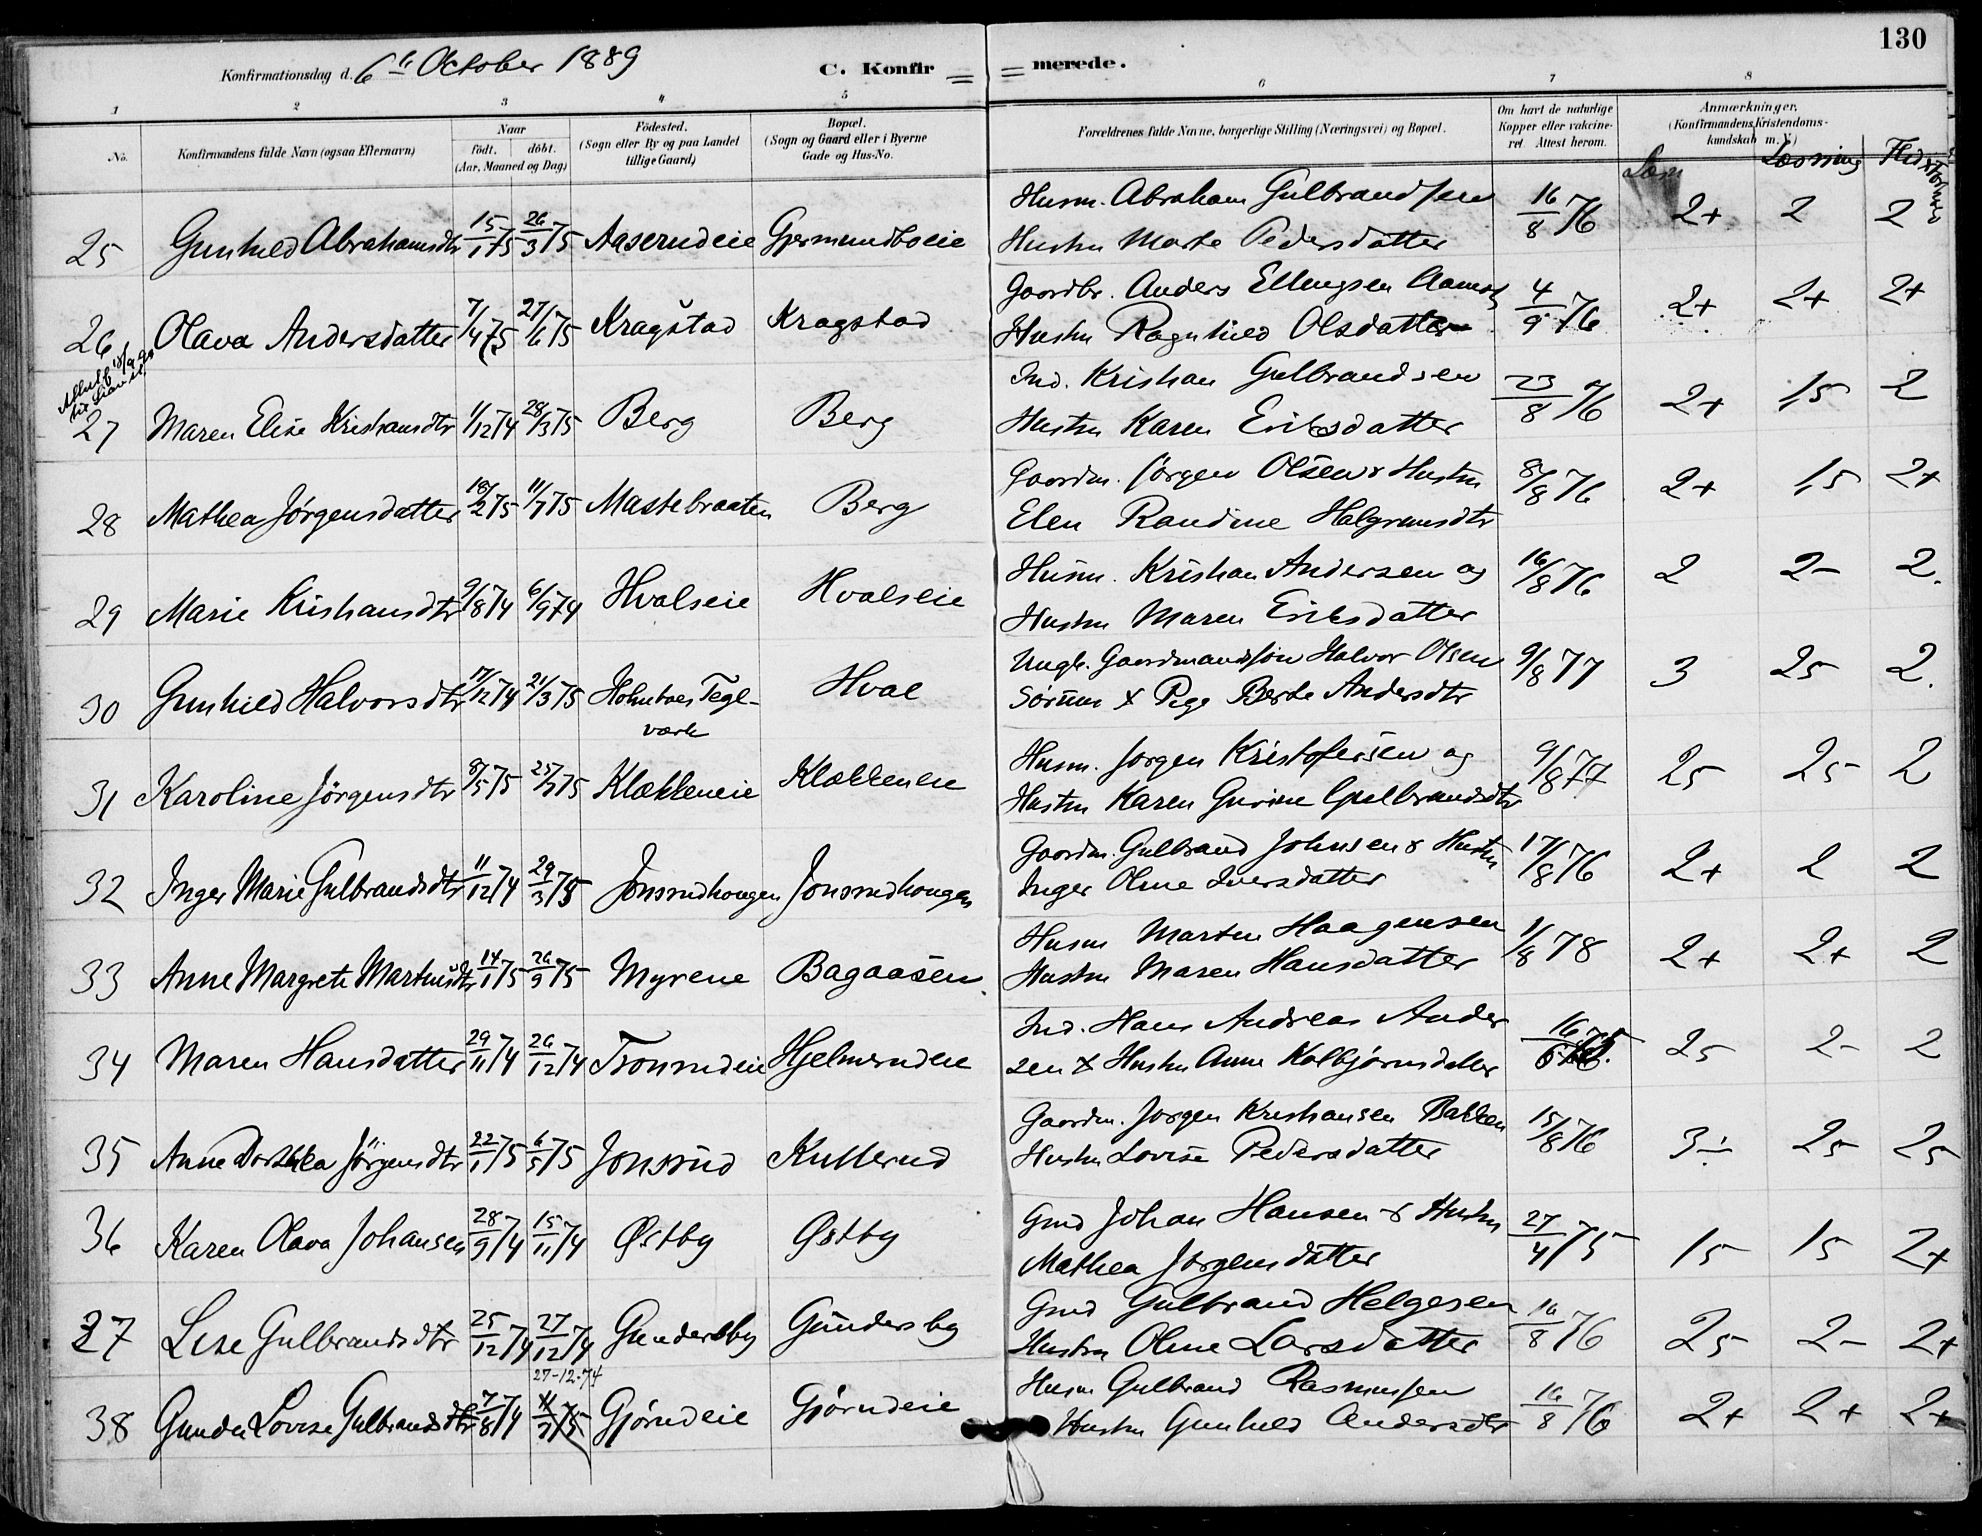 130
Konfirmationsdag d. 6te October 1889 C. Konfir= =merede.
1 2 3 4 5 6 7 8
No. Konfirmandens fulde Navn (ogsaa Efternavn) Naar født. døbt. (Aar, Maaned og Dag) Fødested. (Sogn eller By og paa Landet tillige Gaard) Bopæl. (Sogn og Gaard eller i Byerne Gade og Hus-No. Forældrenes fulde Navne, borgerlige Stilling (Næringsvei) og Bopæl. Om havt de naturlige Kopper eller vakcineret. Attest herom. Anmærkninger, (Konfirmandens Kristendomskundskab m. V.)
Læsning Flid
Husm. Abraham Gulbrandsen
25 Gunhild Abrahamsdtr 15/1 75 26/3 75 Aaserudeie Gjermundboeie Hustru Marte Pedersdatter 16/8 76 2+ 2 2
Gaardbr. Anders Ellingsen
26 Olava Andersdatter 7/4 75 27/6 75 Kragstad Kragstad Hustru Ragnhild Olsdatter 4/9 76 2+ 2+ 2+
Ind. Kristian Gulbrandsen
27 Maren Elise Kristiansdtr 1/12 74 28/3 75 Berg Berg Hustru Karen Eriksdatter 23/8 76 2+ 15 2
Gaardm. Jørgen Olsen & Hustru
28 Mathea Jørgensdatter 18/2 75 11/7 75 Mastebraaten Berg Elen Randine Halgrimsdtr 8/8 76 2+ 15 2+
Husm. Kristian Andersen og
29 Marie Kristiansdtr 9/8 74 6/9 74 Hvalseie Hvalseie Hustru Maren Eriksdatter 16/8 76 2 2- 2.
Ungk. Gaardmandssøn Halvor Olsen
30 Gunhild Halvorsdtr 17/12 74 21/3 75 Holmtoes Tegl- Hval Sörum & Pige Berte Andersdtr 9/8 77 3 25 2.
værk
Husm. Jørgen Kristofersen og
31 Karoline Jørgensdtr 8/5 75 25/7 75 Klækkeneie Klækkeneie Hustru Karen Gurine Gulbrandsdtr 9/8 77 25 25 2
Gaardm. Gulbrand Johnsen & Hustru
32 Inger Marie Gulbrandsdtr 11/12 74 29/3 75 Jonsrudhougen Jonsrudhougen Inger Oline Iversdatter 17/8 76 2+ 2 2
Husm Martin Haagensen
33 Anne Margrete Martinsdtr 14/1 75 26/9 75 Myrene Bagaasen Hustru Maren Hansdatter 1/8 78 2+ 2+ 2
Ind. Hans Andreas Ander
34 Maren Hansdatter 29/11 74 26/12 74 Tronrudeie Hjelmerudeie sen & Hustru Anne Kolbjørnsdatter 25 2- 2
Gaardm. Jørgen Kristiansen Bakken
35 Anne Dorthea Jörgensdtr 22/1 75 6/5 75 Jonsrud Kullerud Hustru Lovise Pedersdatter 15/8 76 3÷ 25 25
Gmd Johan Hansen & Hustru
36 Karen Olava Johansen 28/9 74 15/11 74 Østby Østby Mathea Jørgensdatter 27/4 75 15 15 2+
Gmd Gulbrand Helgesen
37 Lise Gulbrandsdtr 25/12 74 27/12 74 Gundersby Gundersby Hustru Oline Larsdatter 16/8 76 25 2- 2+
27-12-74
Husm Gulbrand Rasmussen
38 Gunda Lovise Gulbrandsdtr 7/8 74 Gjørudeie Gjørudeie Hustru Gunhild Andersdtr 16/8 76 2+ 2+ 2+